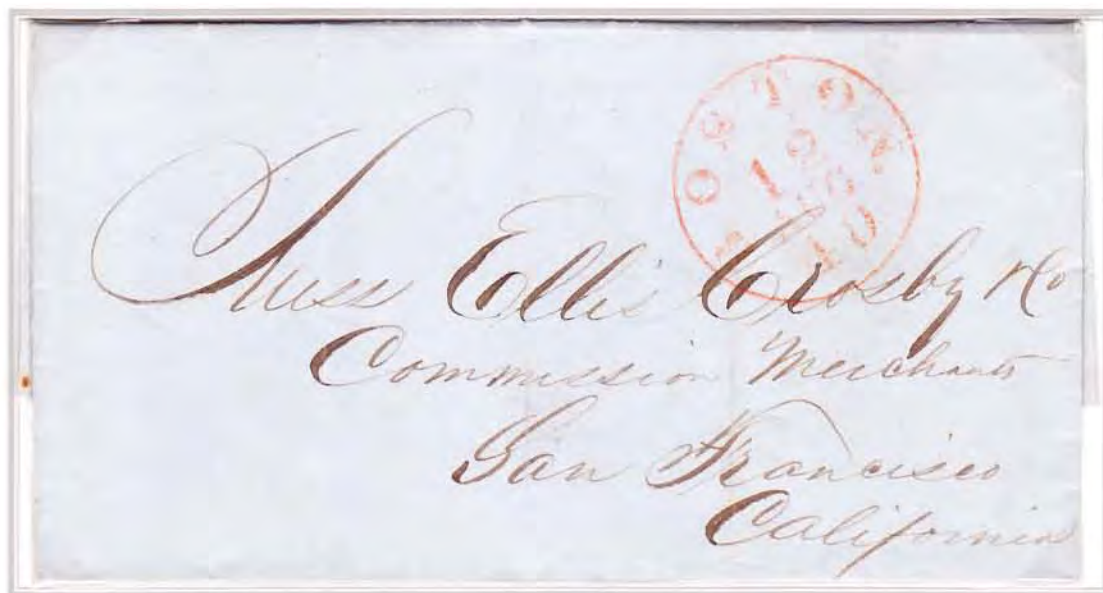 BOSTON.
10
Mess Ellis Crosby & Co
Commission Merchants
San Francisco
California